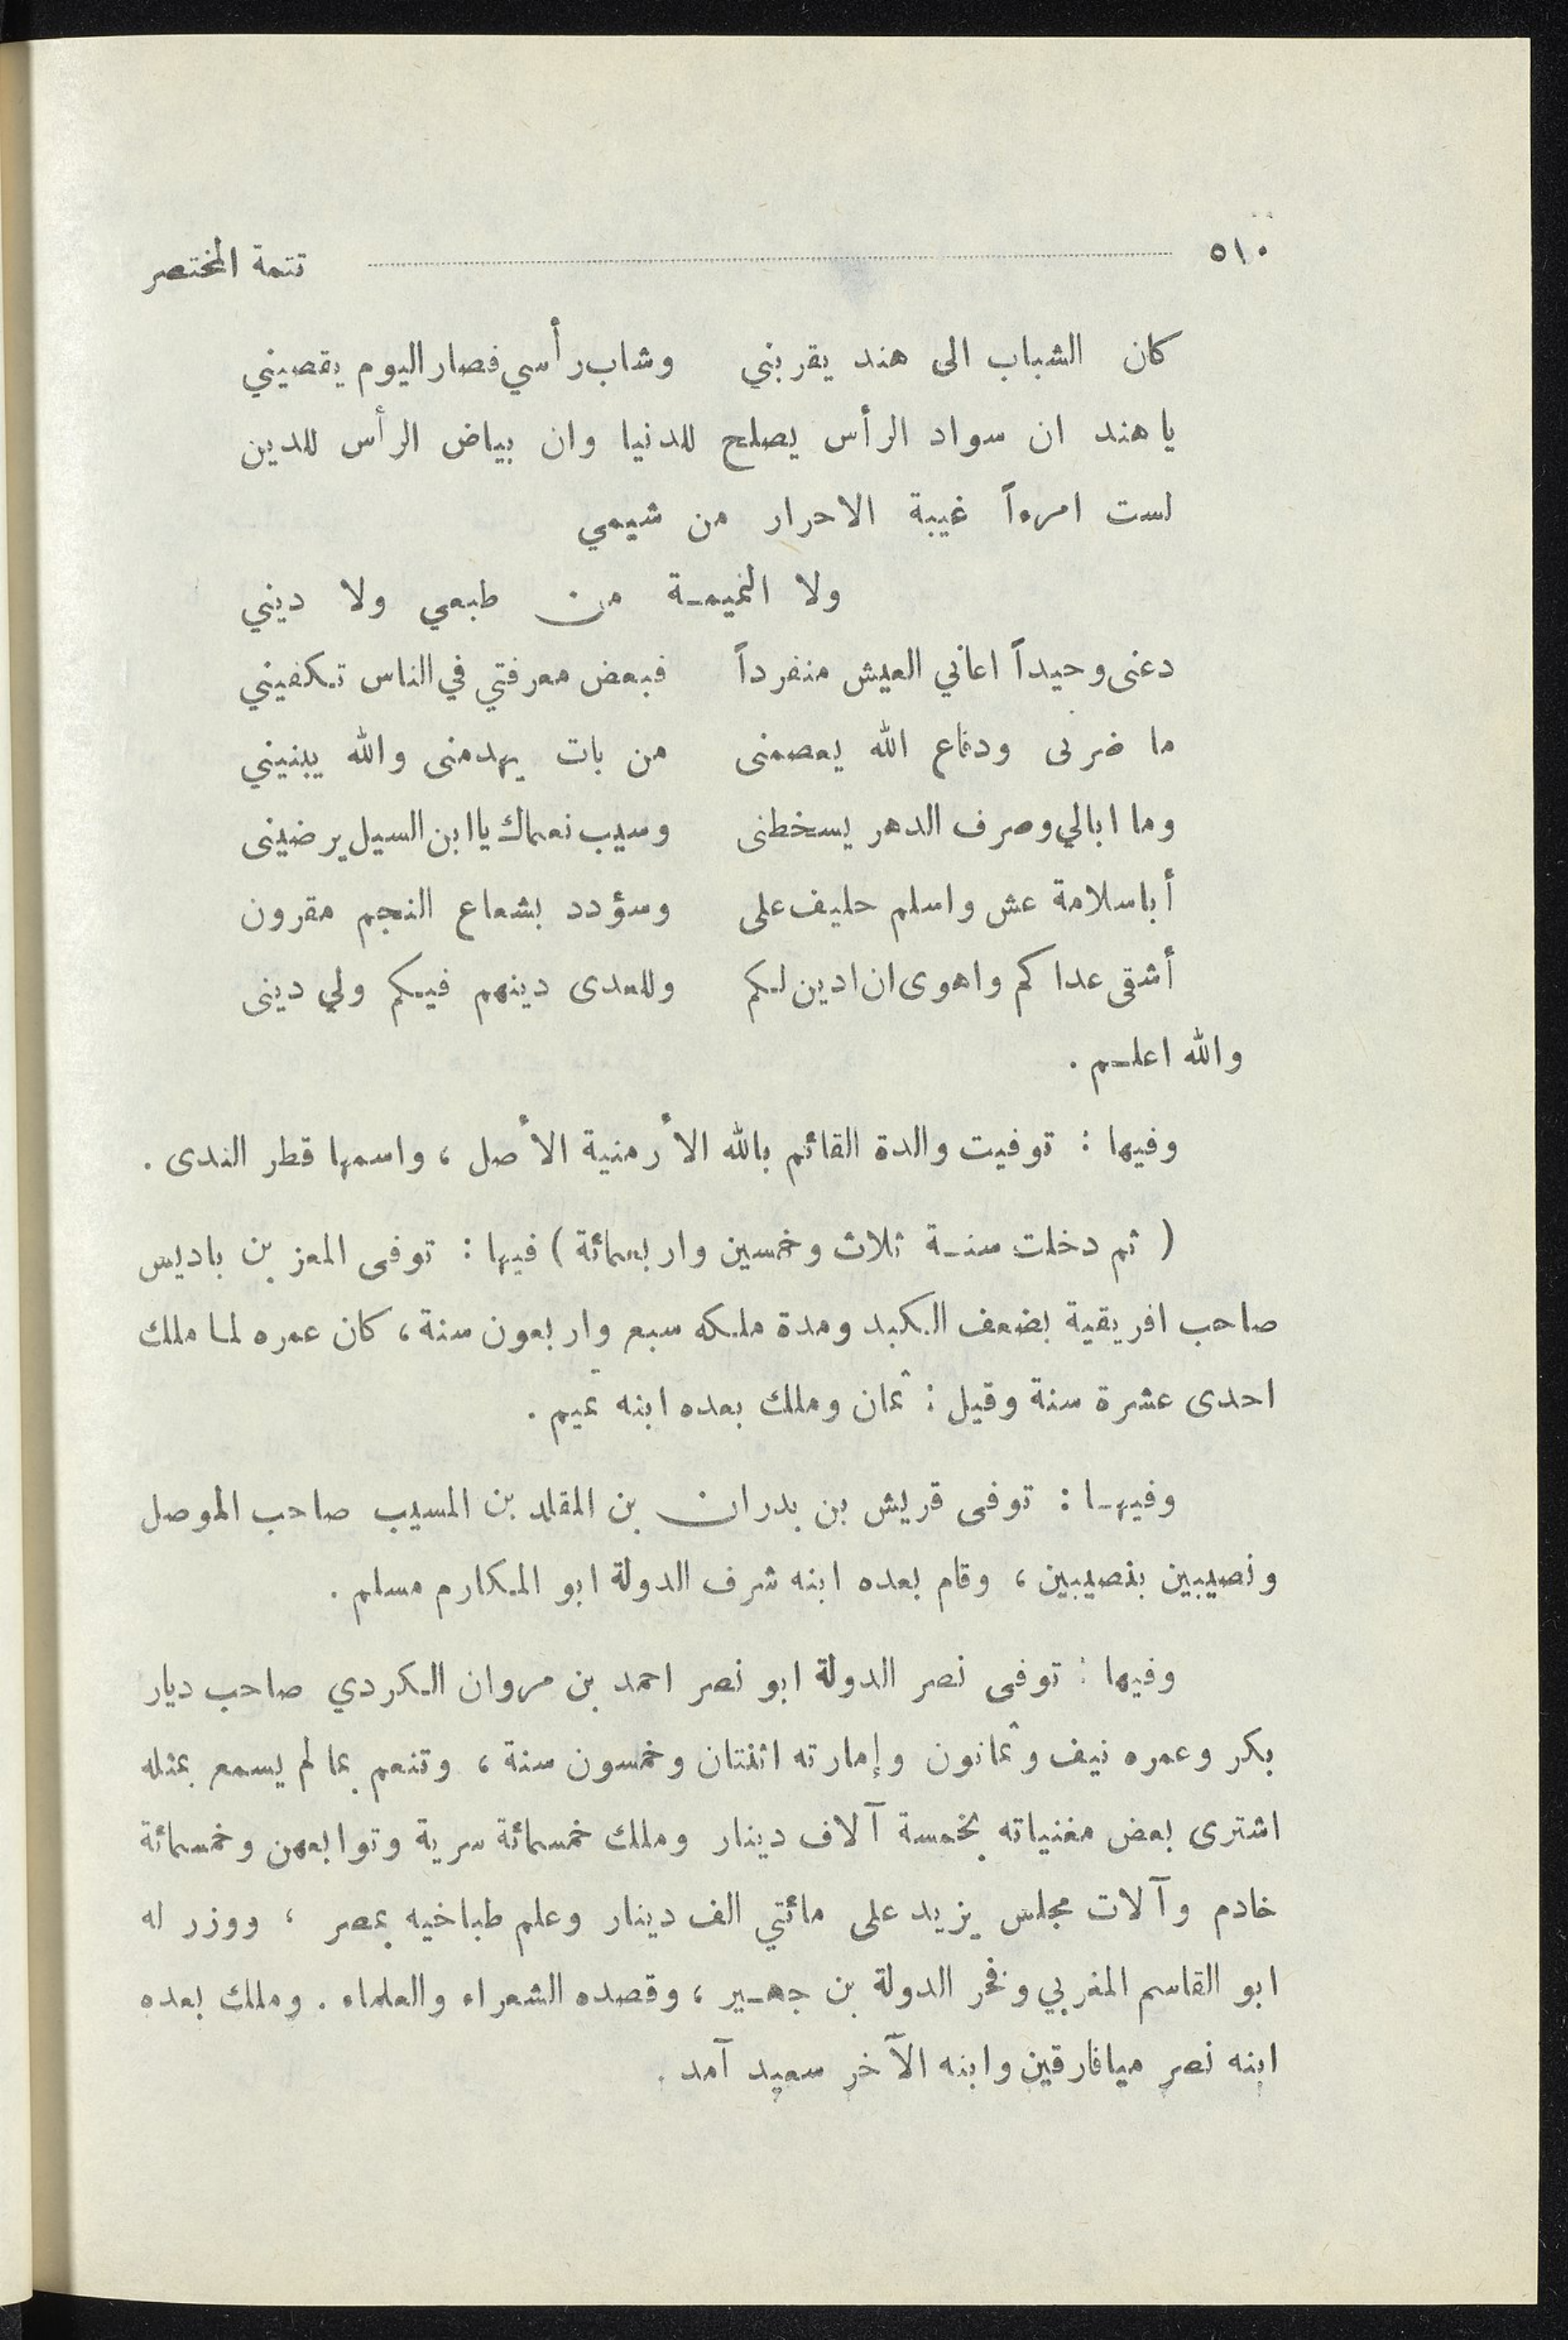 ٥١٠ تتمة المختصر
كان الشباب الى هند يقربني وشاب رأسي فصار اليوم يقصيني
يا هند ان سواد الرأس يصلح للدنيا وان بياض الرأس للدين
لست امرءاً غيبة الاحرار من شيمي
ولا النميمـة من طبعي ولا ديني
دعنى وحيداً اعاني العيش منفرداً فبعض معرفتي في الناس تكفيني
ما ضرنى ودفاع الله يعصمنى من بات يهدمنى والله يبنيني
وما ابالي وصرف الدهر يسخطنى وسيب نعماك يا ابن السيل يرضينى
أبا سلامة عش واسلم حليف على وسؤدد بشعاع النجم مقرون
أشقى عداكم واهوى ان ادين لكم وللعدى دينهم فيكم ولي دينى
والله اعلـم .
وفيها : توفيت والدة القائم بالله الأرمنية الأصل ، واسمها قطر الندى .
( ثم دخلت سنـة ثلاث وخمسين واربعمائة ) فيها : توفى المعز بن باديس
صاحب افريقية بضعف الكبد ومدة ملكه سبع واربعون سنة ، كان عمره لما ملك
احدى عشرة سنة وقيل : ثمان وملك بعده ابنه تميم .
وفيهـا : توفى قريش بن بدران بن المقلد بن المسيب صاحب الموصل
ونصيبين بنصيبين ، وقام بعده ابنه شرف الدولة ابو المكارم مسلم .
وفيها : توفى نصر الدولة ابو نصر احمد بن مروان الكردي صاحب ديار
بكر وعمره نيف وثمانون وإمارته اثنتان وخمسون سنة ، وتنعم بما لم يسمع بمثله
اشترى بعض مغنياته بخمسة آلاف دينار وملك خمسمائة سرية وتوابعهن وخمسمائة
خادم وآلات مجلس يزيد على مائتي الف دينار وعلم طباخيه بمصر ، ووزر له
ابو القاسم المغربي وفخر الدولة بن جهـير ، وقصده الشعراء والعلماء . وملك بعده
ابنه نصر ميافارقين وابنه الآخر سعيد آمد .